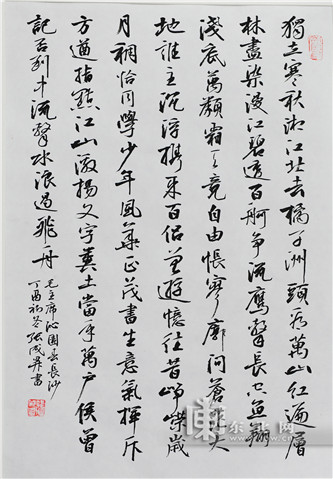 獨立寒秋湘江北去橘子洲頭看萬山紅遍層
林盡染漫江碧透百舸争流鷹擊長空魚翔
淺底萬類霜天競自由悵寥廓問蒼茫大
地誰主沉浮携來百侣曾遊憶往昔崢嶸歲
月稠恰同學少年風華正茂書生意氣揮斥
方遒指點江山激揚文字糞土當年萬户侯曾
記否到中流擊水浪遏飛舟
毛主席沁園春長沙
丁酉初冬張成書